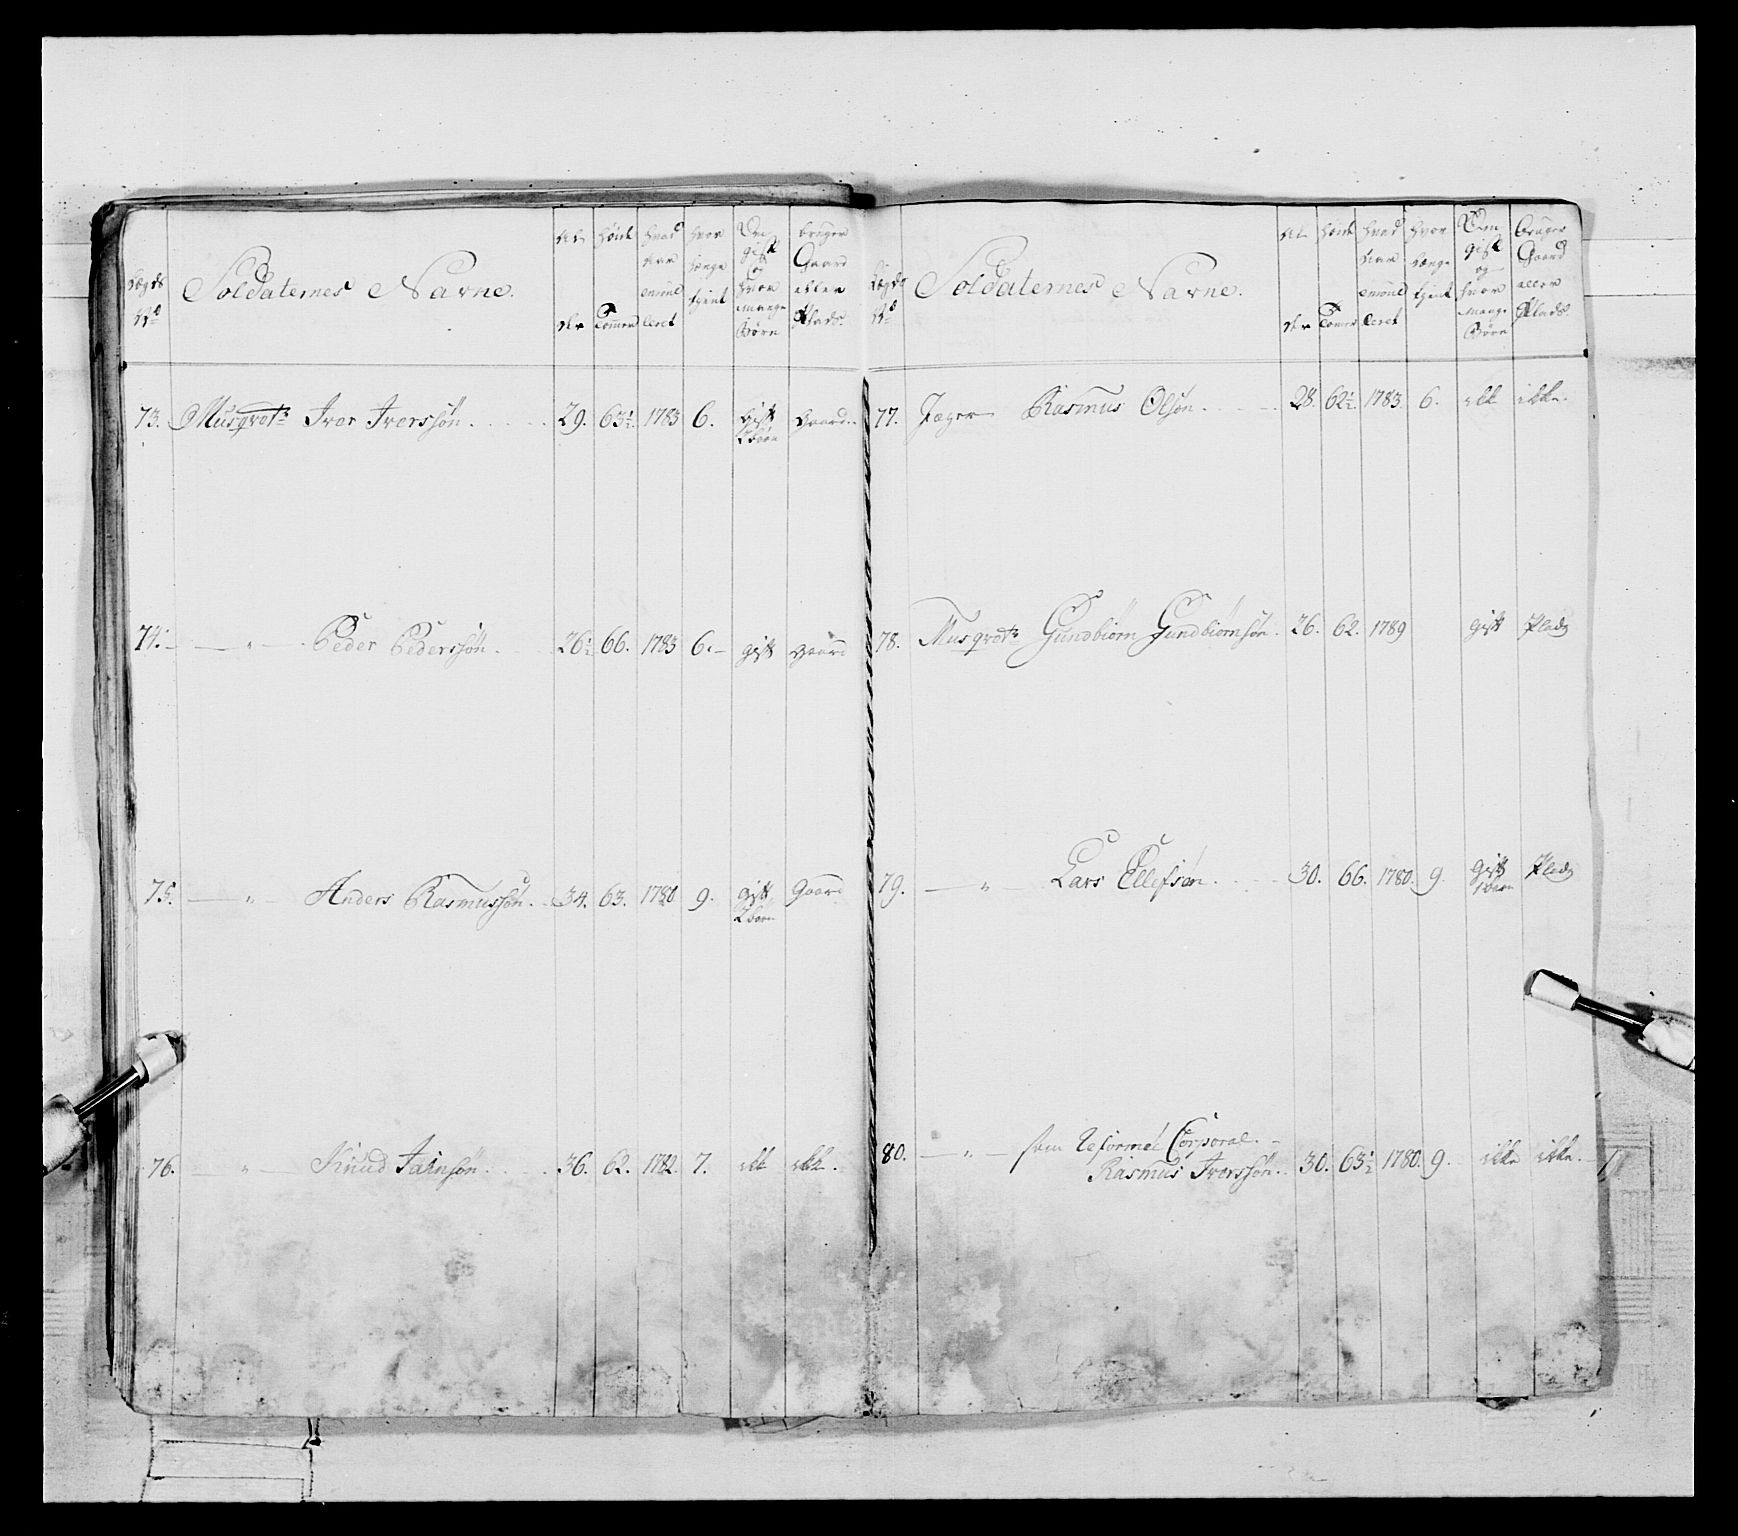 Lægds No
Soldaternes Navne.
Al der
Høide Tommer
hvad Aar enroul leret
hvor længe tjent
Om gift og hvor mange Børn
bruger Gaard eller Plads.
73. Musqvetr Iver Iverssøn. 29. 63½. 1783 6. gift 2 børn Gaard.
74. — " — Peder Pederssøn. 26½ 66. 1783 6. gift gaard
75. — " — Anders Rasmussøn. 34. 63. 1780 9. gift 2 børn Gaard
76. " — Knud Sainsøn. 36. 62. 1782. 7. ikk ikk.
Lægds No
Soldaternes Navne.
Al der
Høide Tomer
hvad Aar enroul leret
hvor længe tjent
Om gift og hvor mange Børn
bruger Gaard eller Plads.
77. Jæger Rasmus Olsøn. 28. 62½. 1783. 6. ikk ikke.
78. Musqvetr Gundbiørn Gundbiørnsøn. 26. 62. 1789 gift Plads
79. — " — Lars Ellefsøn. 30. 66. 1780. 9. gift 1 barn Plads
80. — " — som Reformet Corporal.
Rasmus Iverssøn. 30. 63½ 1780. 9. ikke ikke.